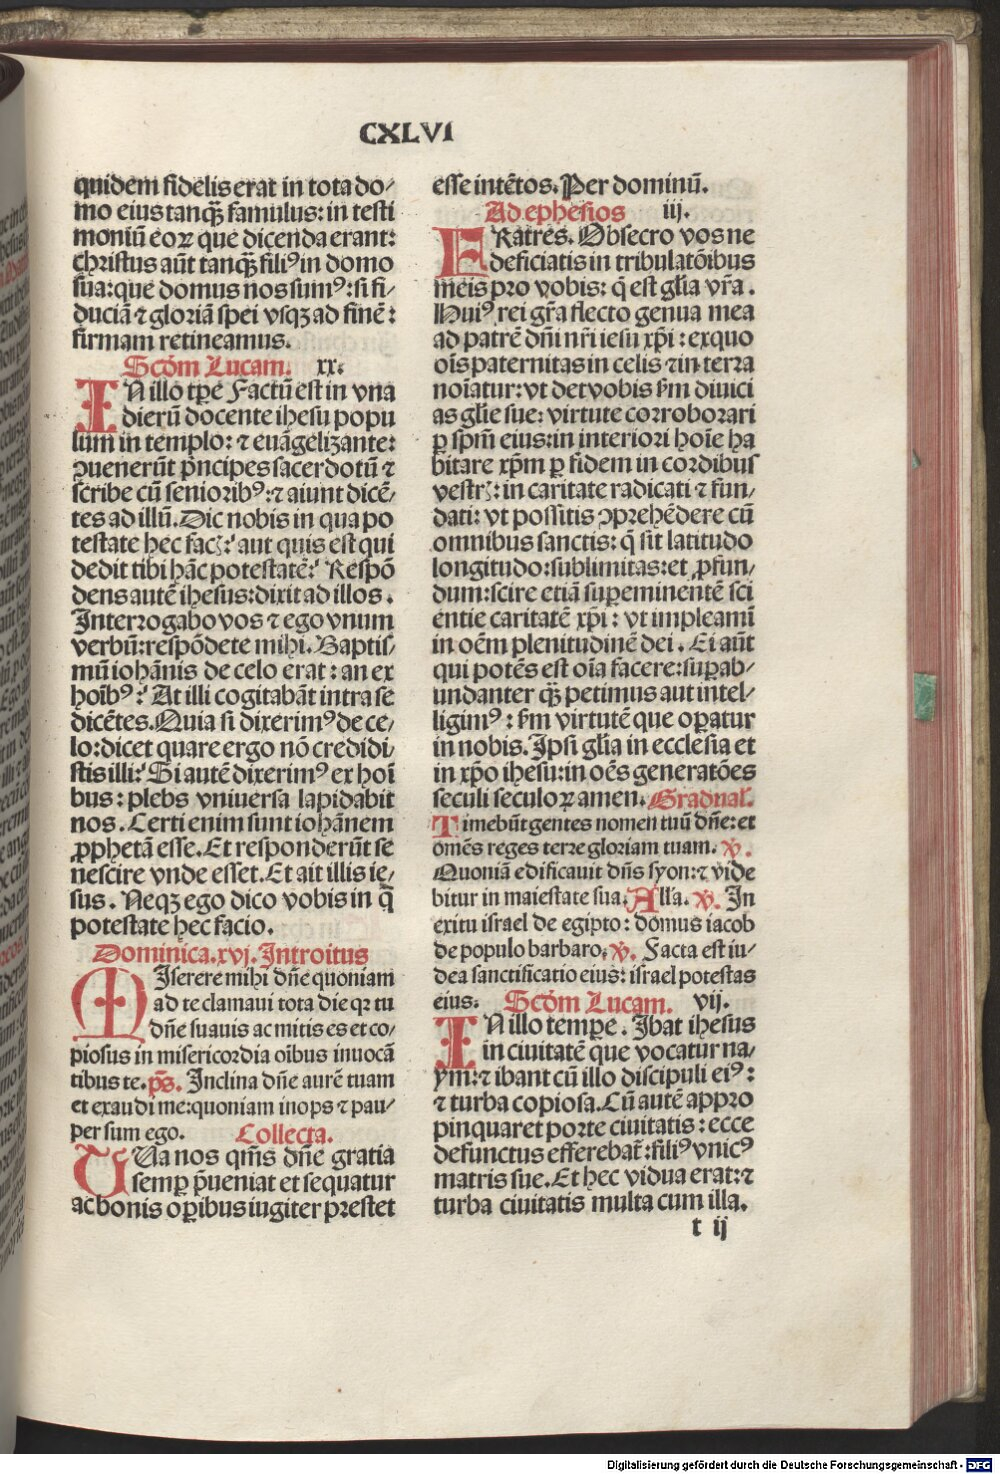 CXLVI
quidem fidelis erat in tota do/
mo eius tanqȝ famulus: in testi
moniū eoꝝ que dicenda erant:
christus aūt tanqȝ filiꝰ in domo
sua: que domus nos sumꝰ: si fi/
duciā ⁊ gloriā spei vsqȝ ad finē:
firmam retineamus.
Scd̄m Lucam. xx.
IN illo tp̄e Factū est in vna
dierū docente ihesu popu
lum in templo: ⁊ euāgelizante:
ꝯuenerūt p̄ncipes sacerdotū ⁊
scribe cū senioribꝰ: ⁊ aiunt dicē/
tes ad illū. Dic nobis in qua po
testate hec facꝭ: aut quis est qui
dedit tibi hāc potestatē: Respō
dens autē ihesus: dixit ad illos.
Interrogabo vos ⁊ ego vnum
verbū: respōdete mihi. Baptis/
mū iohānis de celo erat: an ex
hoībꝰ: At illi cogitabāt intra se
dicētes. Quia si dixerimꝰ de ce/
lo: dicet quare ergo nō credidi/
stis illi: Si autē dixerimꝰ ex hoī
bus: plebs vniuersa lapidabit
nos. Certi enim sunt iohānem
ꝓphetā esse. Et responderūt se
nescire vnde esset. Et ait illis ie/
sus. Neqȝ ego dico vobis in q̄
potestate hec facio.
Dominica. xvj. Introitus
MIserere mihi dn̄e quoniam
ad te clamaui tota die qꝛ tu
dn̄e suauis ac mitis es et co/
piosus in misericordia oībus inuocā
tibus te. ps̄. Inclina dn̄e aurē tuam
et exaudi me: quoniam inops ⁊ pau/
per sum ego. Collecta.
TUa nos qm̄s dn̄e gratia
semꝑ p̄ueniat et sequatur
ac bonis oꝑibus iugiter prestet
esse intētos. Per dominū.
Ad ephesios iij.
FRatres. Obsecro vos ne
deficiatis in tribulatōibus
meis pro vobis: q̄ est gl̄ia vr̄a.
Huiꝰ rei gr̄a flecto genua mea
ad patrē dn̄i nr̄i iesu xp̄i: ex quo
oīs paternitas in celis ⁊ in terra
noīatur: vt det vobis ẜm diuici
as gl̄ie sue: virtute corroborari
ꝑ sp̄m eius: in interiori hoīe ha
bitare xp̄m ꝑ fidem in cordibus
vestrꝭ: in caritate radicati ⁊ fun/
dati: vt possitis ꝯprehēdere cū
omnibus sanctis: q̄ sit latitudo
longitudo: sublimitas: et ꝓfun/
dum: scire etiā suꝑeminentē sci
entie caritatē xp̄i: vt impleamī
in oēm plenitudinē dei. Ei aūt
qui potēs est oīa facere: suꝑab/
undanter qȝ petimus aut intel/
ligimꝰ: ẜm virtutē que oꝑatur
in nobis. Ipsi gl̄ia in ecclesia et
in xp̄o ihesu: in oēs generatōes
seculi seculoꝝ amen. Gradual̄.
Timebūt gentes nomen tuū dn̄e: et
omēs reges terre gloriam tuam. ꝟ.
Quoniā edificauit dn̄s syon: ⁊ vide
bitur in maiestate sua. All̄a. ꝟ. In
exitu israel de egipto: domus iacob
de populo barbaro. ꝟ. Facta est iu/
dea sanctificatio eius: israel potestas
eius. Scd̄m Lucam. vij.
IN illo tempe. Ibat ihesus
in ciuitatē que vocatur na/
ym: ⁊ ibant cū illo discipuli eiꝰ:
⁊ turba copiosa. Cū autē appro
pinquaret porte ciuitatis: ecce
defunctus efferebat̄: filiꝰ vnicꝰ
matris sue. Et hec vidua erat: ⁊
turba ciuitatis multa cum illa.
t ij
Digitalisierung gefördert durch die Deutsche Forschungsgemeinschaft - DFG